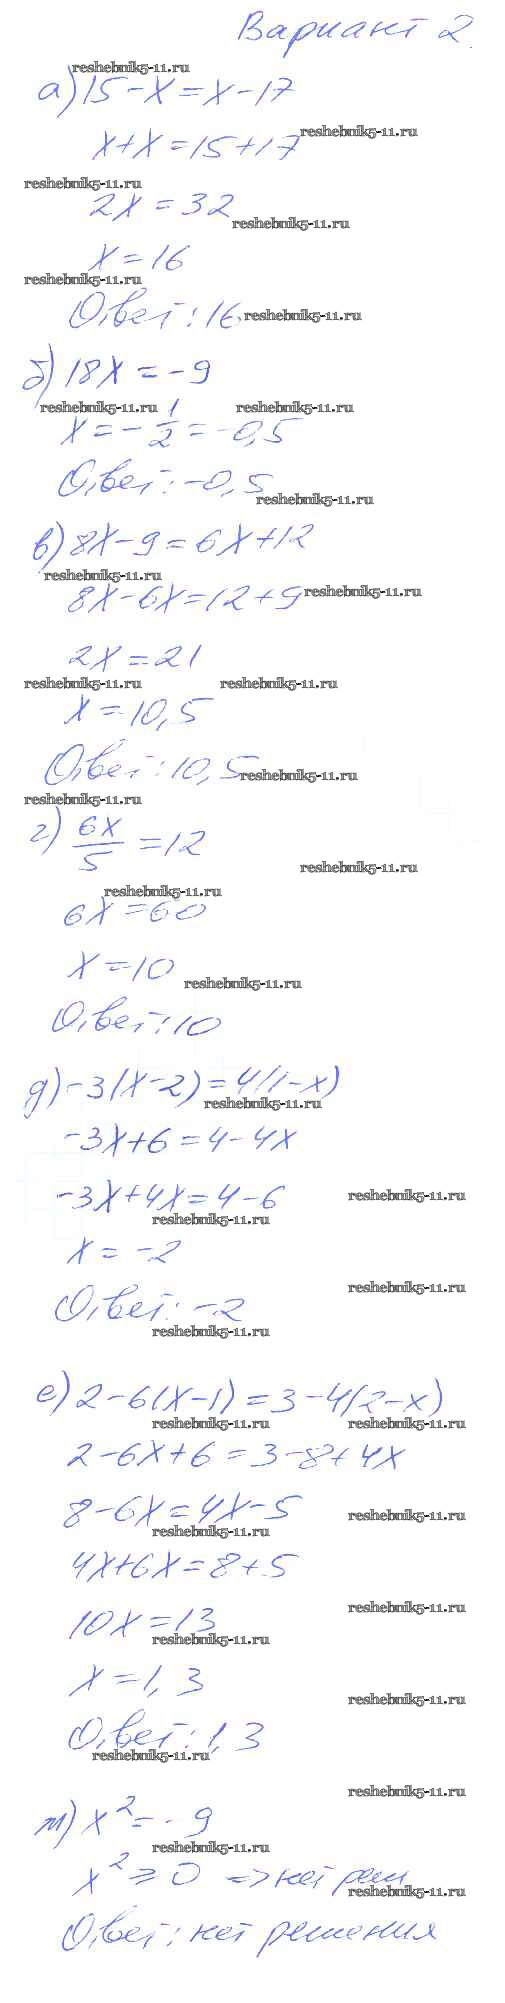 Вариант 2.
reshebnik5-11.ru
а) 15 - x = x - 17
reshebnik5-11.ru
x + x = 15 + 17
reshebnik5-11.ru
2x = 32
reshebnik5-11.ru
x = 16
reshebnik5-11.ru
Ответ: 16
reshebnik5-11.ru
б) 18x = -9
reshebnik5-11.ru reshebnik5-11.ru
x = -1/2 = -0,5
Ответ: -0,5
reshebnik5-11.ru
в) 8x - 9 = 6x + 12
reshebnik5-11.ru
8x - 6x = 12 + 9
reshebnik5-11.ru
2x = 21
reshebnik5-11.ru reshebnik5-11.ru
x = 10,5
Ответ: 10,5
reshebnik5-11.ru
reshebnik5-11.ru
г) 6x/5 = 12
reshebnik5-11.ru
reshebnik5-11.ru
6x = 60
x = 10
reshebnik5-11.ru
Ответ: 10
д) -3(x - 2) = 4(1 - x)
reshebnik5-11.ru
-3x + 6 = 4 - 4x
-3x + 4x = 4 - 6
reshebnik5-11.ru
reshebnik5-11.ru
x = -2
reshebnik5-11.ru
Ответ: -2
reshebnik5-11.ru
е) 2 - 6(x - 1) = 3 - 4(2 - x)
reshebnik5-11.ru reshebnik5-11.ru
2 - 6x + 6 = 3 - 8 + 4x
8 - 6x = 4x - 5
reshebnik5-11.ru
reshebnik5-11.ru
4x + 6x = 8 + 5
reshebnik5-11.ru
10x = 13
reshebnik5-11.ru
x = 1,3
reshebnik5-11.ru
Ответ: 1,3
reshebnik5-11.ru
reshebnik5-11.ru
m) x² = -9
reshebnik5-11.ru
x² ≥ 0 => нет реш
reshebnik5-11.ru
Ответ: нет решения